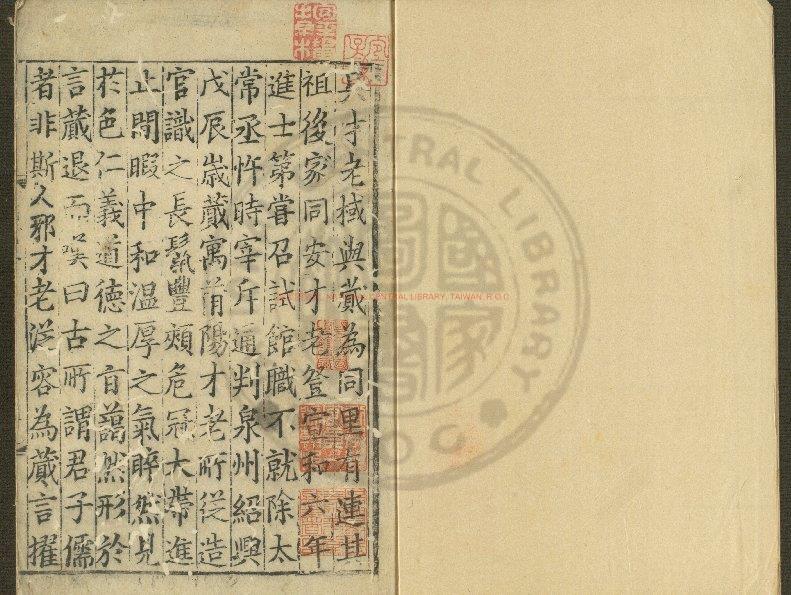 吳才老棫與蕆為同里有連其
祖後家同安才老登宣和六年
進士第嘗召試館職不就除太
常丞忤時宰斥通判泉州紹興
戊辰歲蕆寓莆陽才老所從造
官識之長鬚豐頰危冠大帶進
止閒暇中和溫厚之氣睟然見
於色仁義道德之言藹然形於
言蕆退而嘆曰古所謂君子儒
者非斯人邪才老從容為蕆言擢
NATIONAL CENTRAL LIBRARY, TAIWAN, R.O.C
CENTRAL LIBRARY
國家圖書
R O C